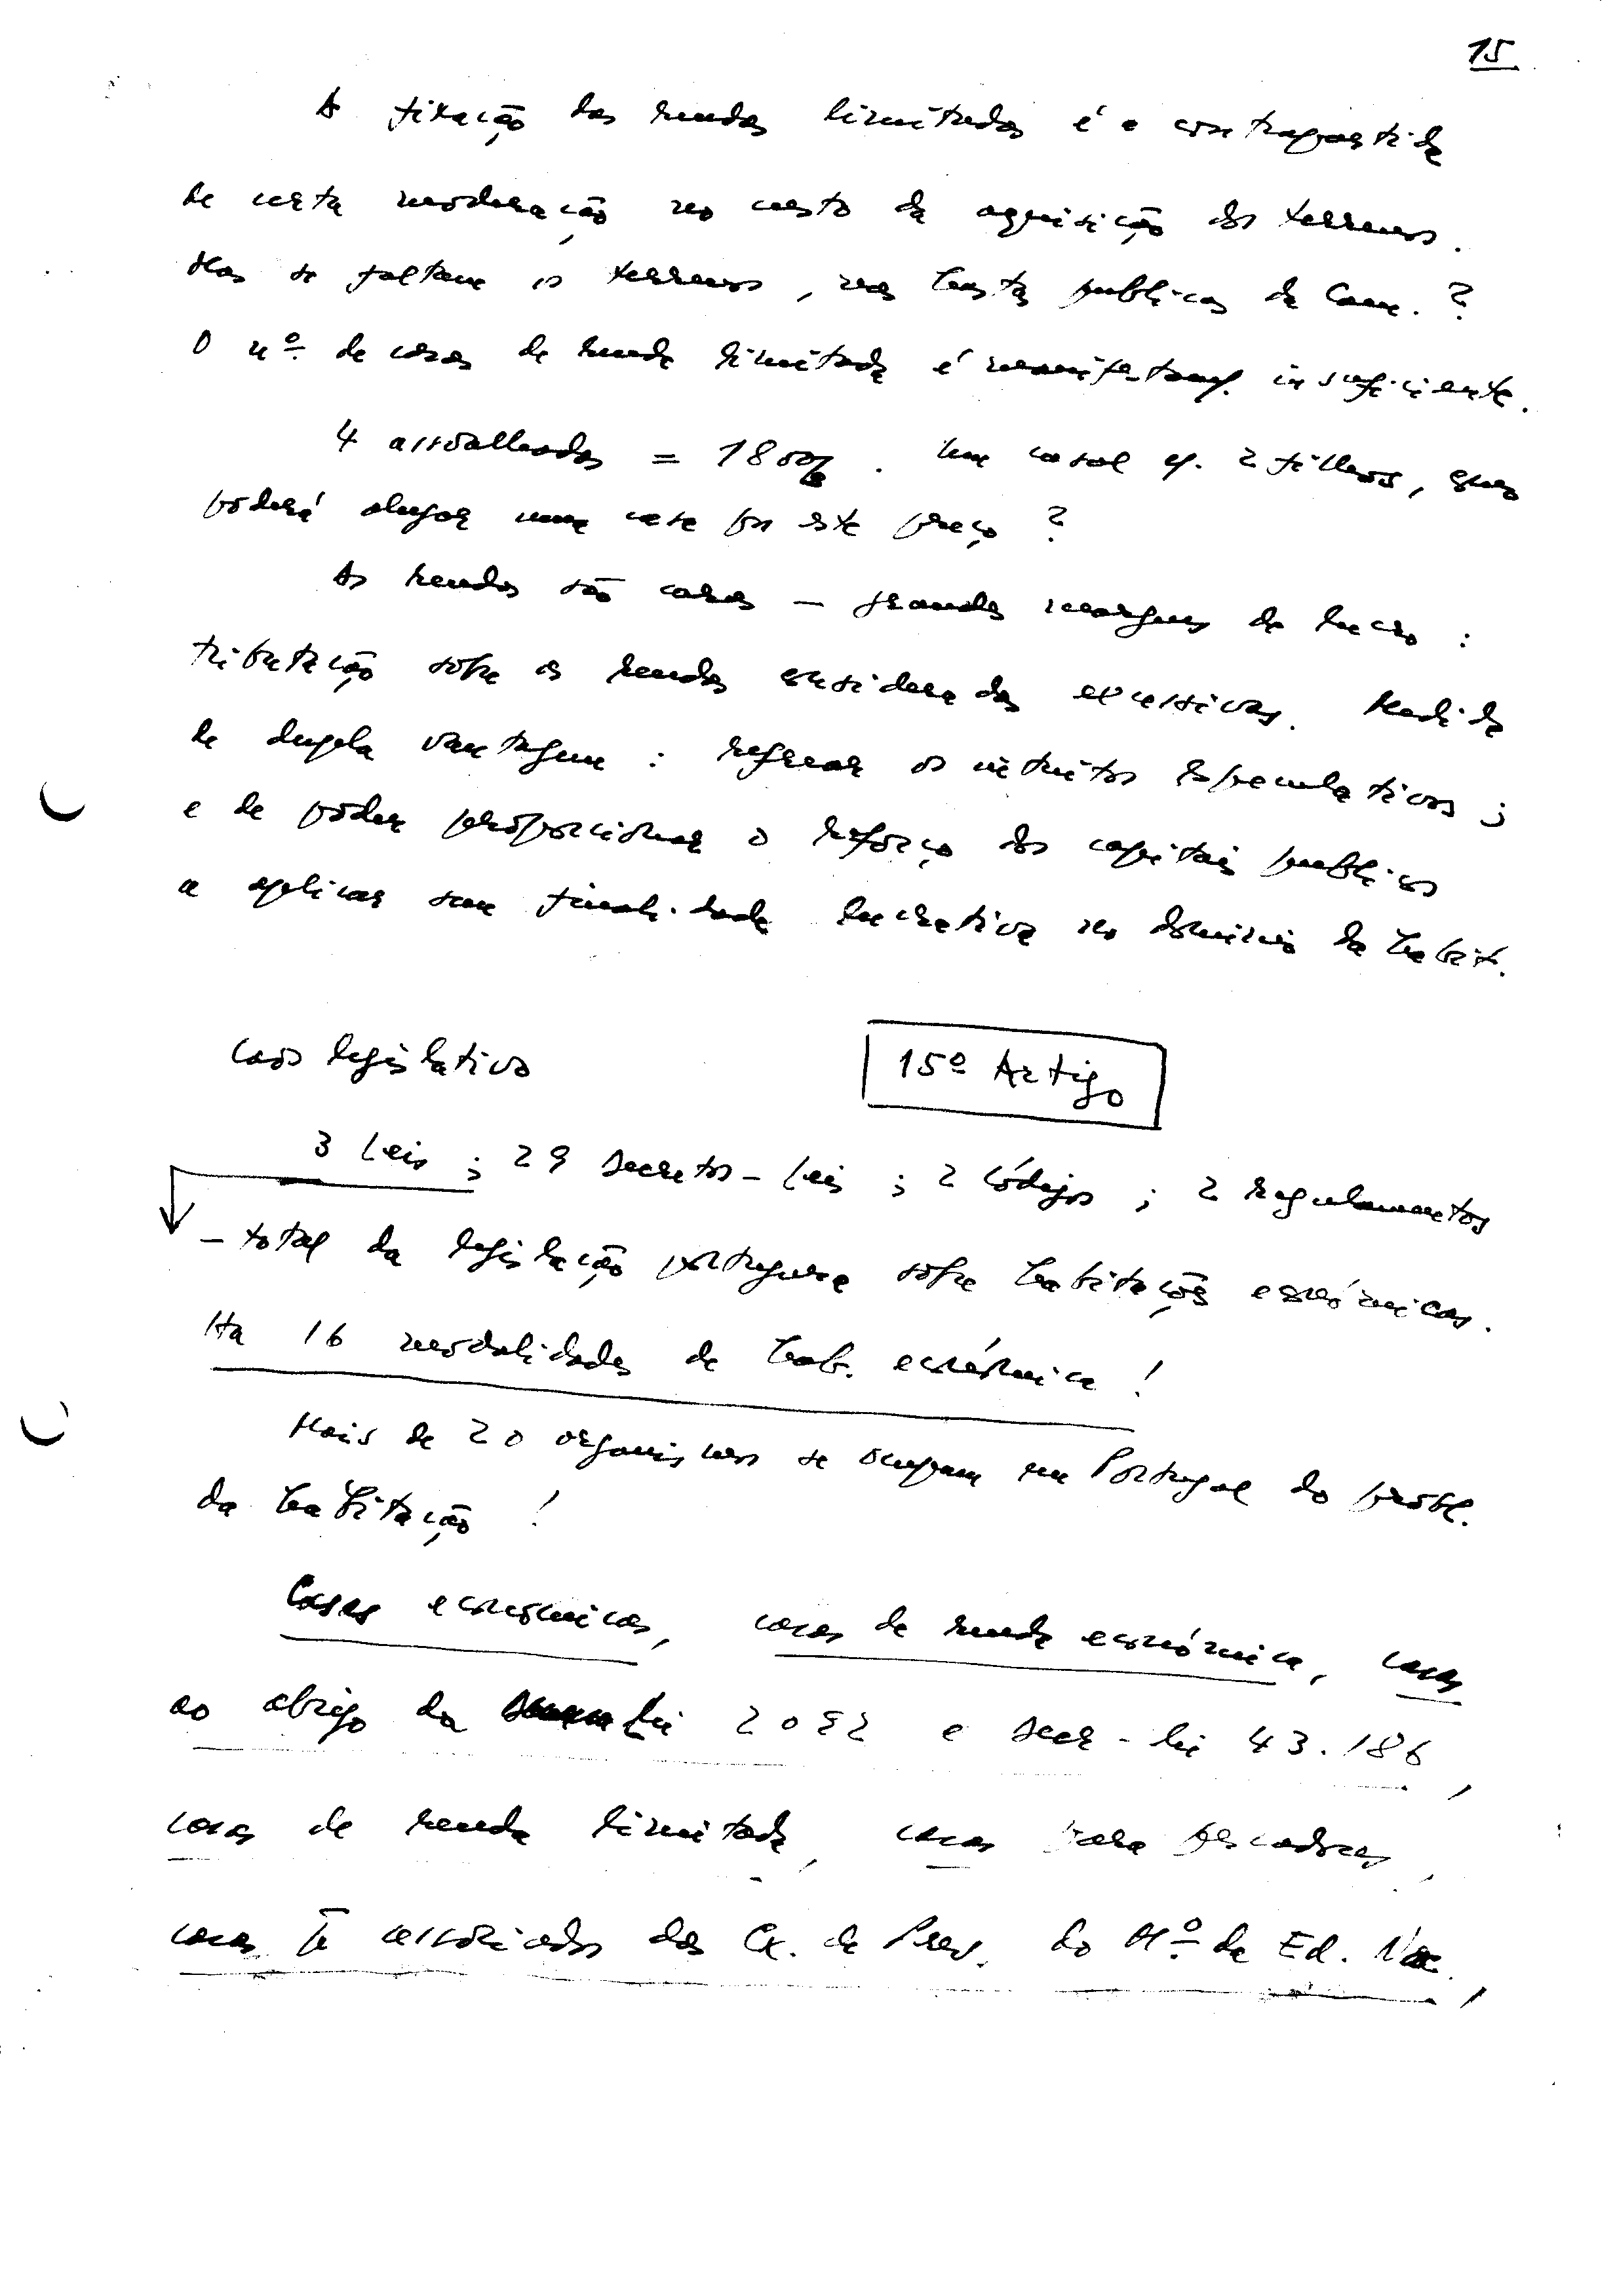 15
A fixação das rendas limitadas é a contrapartida
de certa moderação no custo da aquisição dos terrenos.
Mas se faltam os terrenos, nas hastas publicas da Cam.?
O nº de casas de renda limitada é manifestamt. insuficiente.
4 assoalhadas = 1800$. Um casal c/. 2 filhos, que
poderá alugar uma casa por este preço?
As rendas são caras – grandes margens de lucro:
tributação sobre as rendas consideradas excessivas. Medida
de dupla vantagem: refrear os intuitos especulativos;
e de poder proporcionar o reforço dos capitais publicos
a aplicar sem finalidade lucrativa no dominio da habit.
Caos legislativo
15º Artigo
3 Leis; 29 Decretos-Leis; 2 Códigos; 2 Regulamentos
– total da legislação portuguesa sobre habitações económicas.
Ha 16 modalidades de hab. económica!
Mais de 20 organismos se ocupam em Portugal do probl.
da habitação!
Casas económicas, casas de renda económica, casas
ao abrigo da Lei 2092 e Decr-lei 43.186,
casas de renda limitada, casas para pescadores,
casas p. associados das Cx. de Prev. do Mº da Ed. Nac.,